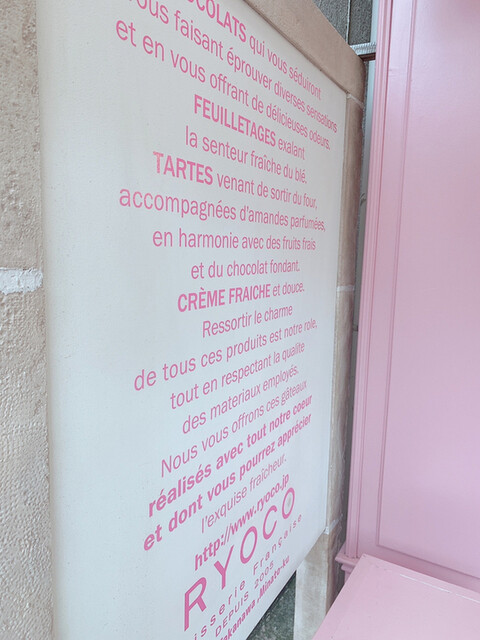 CHOCOLATS qui vous séduiront
vous faisant éprouver diverses sensations
et en vous offrant de délicieuses odeurs.
FEUILLETAGES exalant
la senteur fraîche du blé.
TARTES venant de sortir du four,
accompagnées d'amandes parfumées,
en harmonie avec des fruits frais
et du chocolat fondant.
CRÈME FRAICHE et douce.
Ressortir le charme
de tous ces produits est notre role,
tout en respectant la qualite
des materiaux employés.
Nous vous offrons ces gâteaux
réalisés avec tout notre coeur
et dont vous pourrez apprécier
l'exquise fraîcheur.
http://www.ryoco.jp
RYOCO
isserie Française
DEPUIS 2005
akanawa, Minato-ku